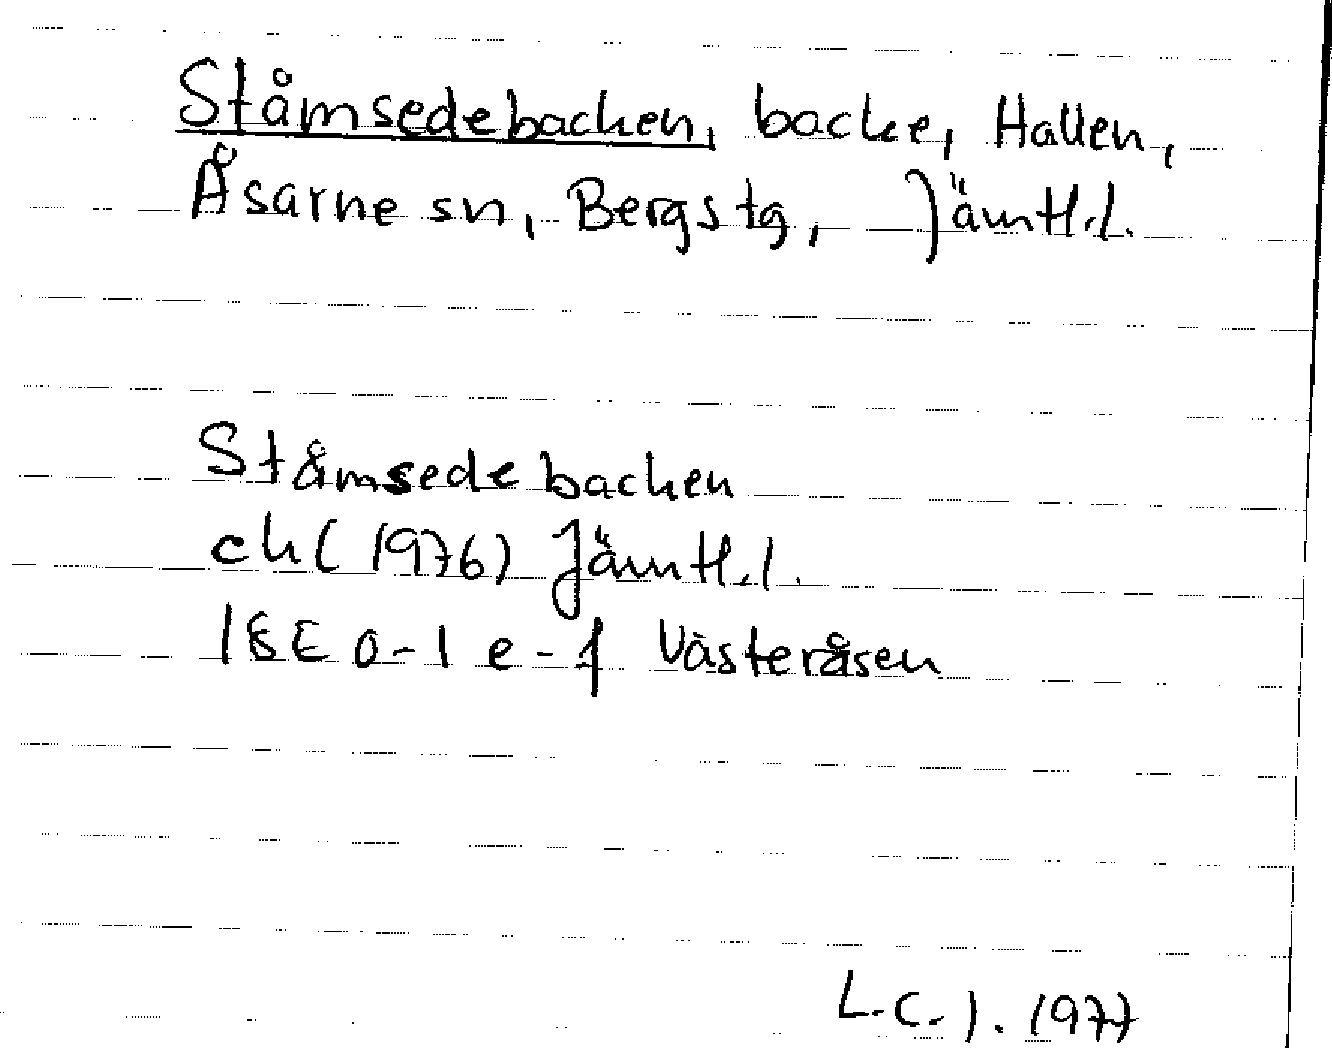 Ståmsedebacken, backe, Hallen,
Åsarne sn, Bergs tg, Jämtl.l.
Ståmsedebacken
ek (1976) Jämtl.l.
18E 0-1 e-f Västeråsen
L.C.J. 1977